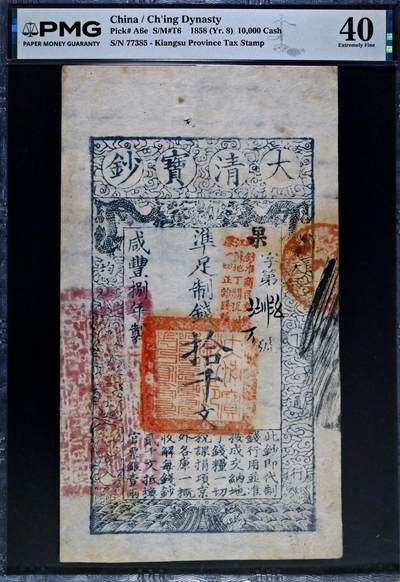 PMG
PAPER MONEY GUARANTY
China / Ch'ing Dynasty
Pick# A6e S/M#T6 1858 (Yr. 8) 10,000 Cash
S/N 77385 - Kiangsu Province Tax Stamp
40
Extremely Fine
大清寶鈔
果字第
準足制錢拾千文
咸豐捌年製
此鈔即代制
錢行用並准
按成交納地
丁錢糧一切
稅課捐項京
外各庫一概
收解每錢鈔
貳千文抵換
官票銀壹兩